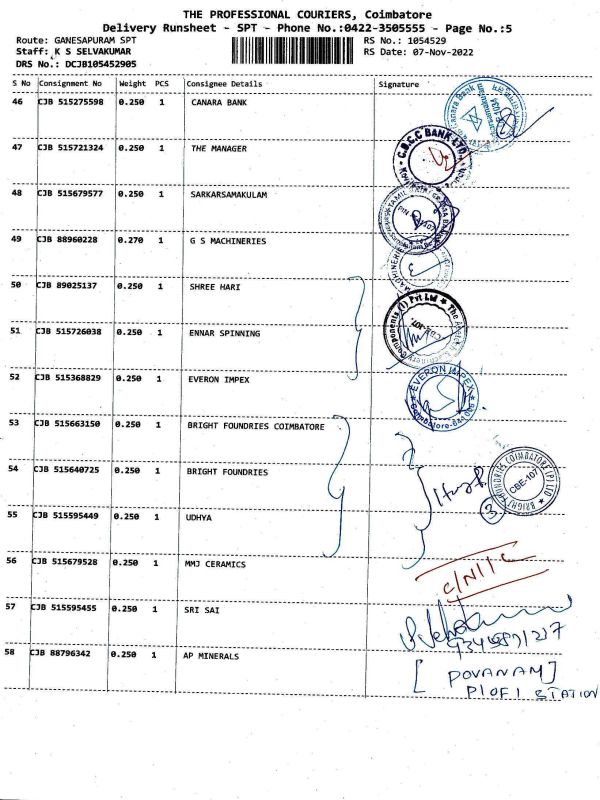 THE PROFESSIONAL COURIERS, Coimbatore
Delivery Runsheet - SPT - Phone No.:0422-3505555 - Page No.:5
Route: GANESAPURAM SPT RS No.: 1054529
Staff: K S SELVAKUMAR RS Date: 07-Nov-2022
DRS No.: DCJB105452905
S No Consignment No Weight PCS Consignee Details Signature
46 CJB 515275598 0.250 1 CANARA BANK
Canara Bank
47 CJB 515721324 0.250 1 THE MANAGER
BANK LTD
48 CJB 515679577 0.250 1 SARKARSAMAKULAM
49 CJB 88960228 0.270 1 G S MACHINERIES
50 CJB 89025137 0.250 1 SHREE HARI
Components (I) Pvt Ltd
51 CJB 515726038 0.250 1 ENNAR SPINNING
52 CJB 515368829 0.250 1 EVERON IMPEX
EVERON IMPEX
53 CJB 515663150 0.250 1 BRIGHT FOUNDRIES COIMBATORE
54 CJB 515640725 0.250 1 BRIGHT FOUNDRIES
BRIGHT FOUNDRIES COIMBATORE (P) LTD
CBE-107
55 CJB 515595449 0.250 1 UDHYA
56 CJB 515679528 0.250 1 MMJ CERAMICS
57 CJB 515595455 0.250 1 SRI SAI
58 CJB 88796342 0.250 1 AP MINERALS
[POVANAM]
STATION